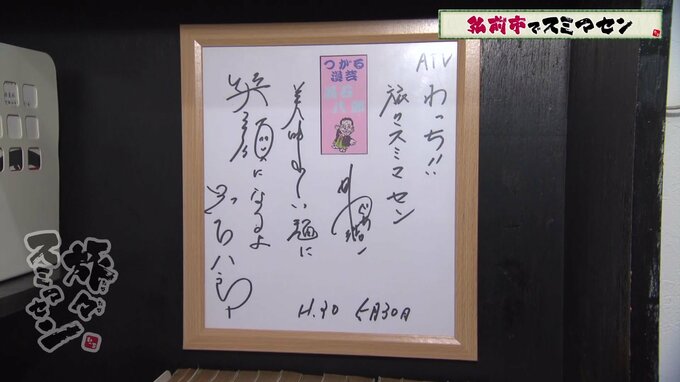 弘前市でスミマセン
ATV
わっち!!
旅のスミマセン
つがる
漫芸
美味しい麺に
笑顔になるよ
H.30 5月30日
旅々
スミマセン